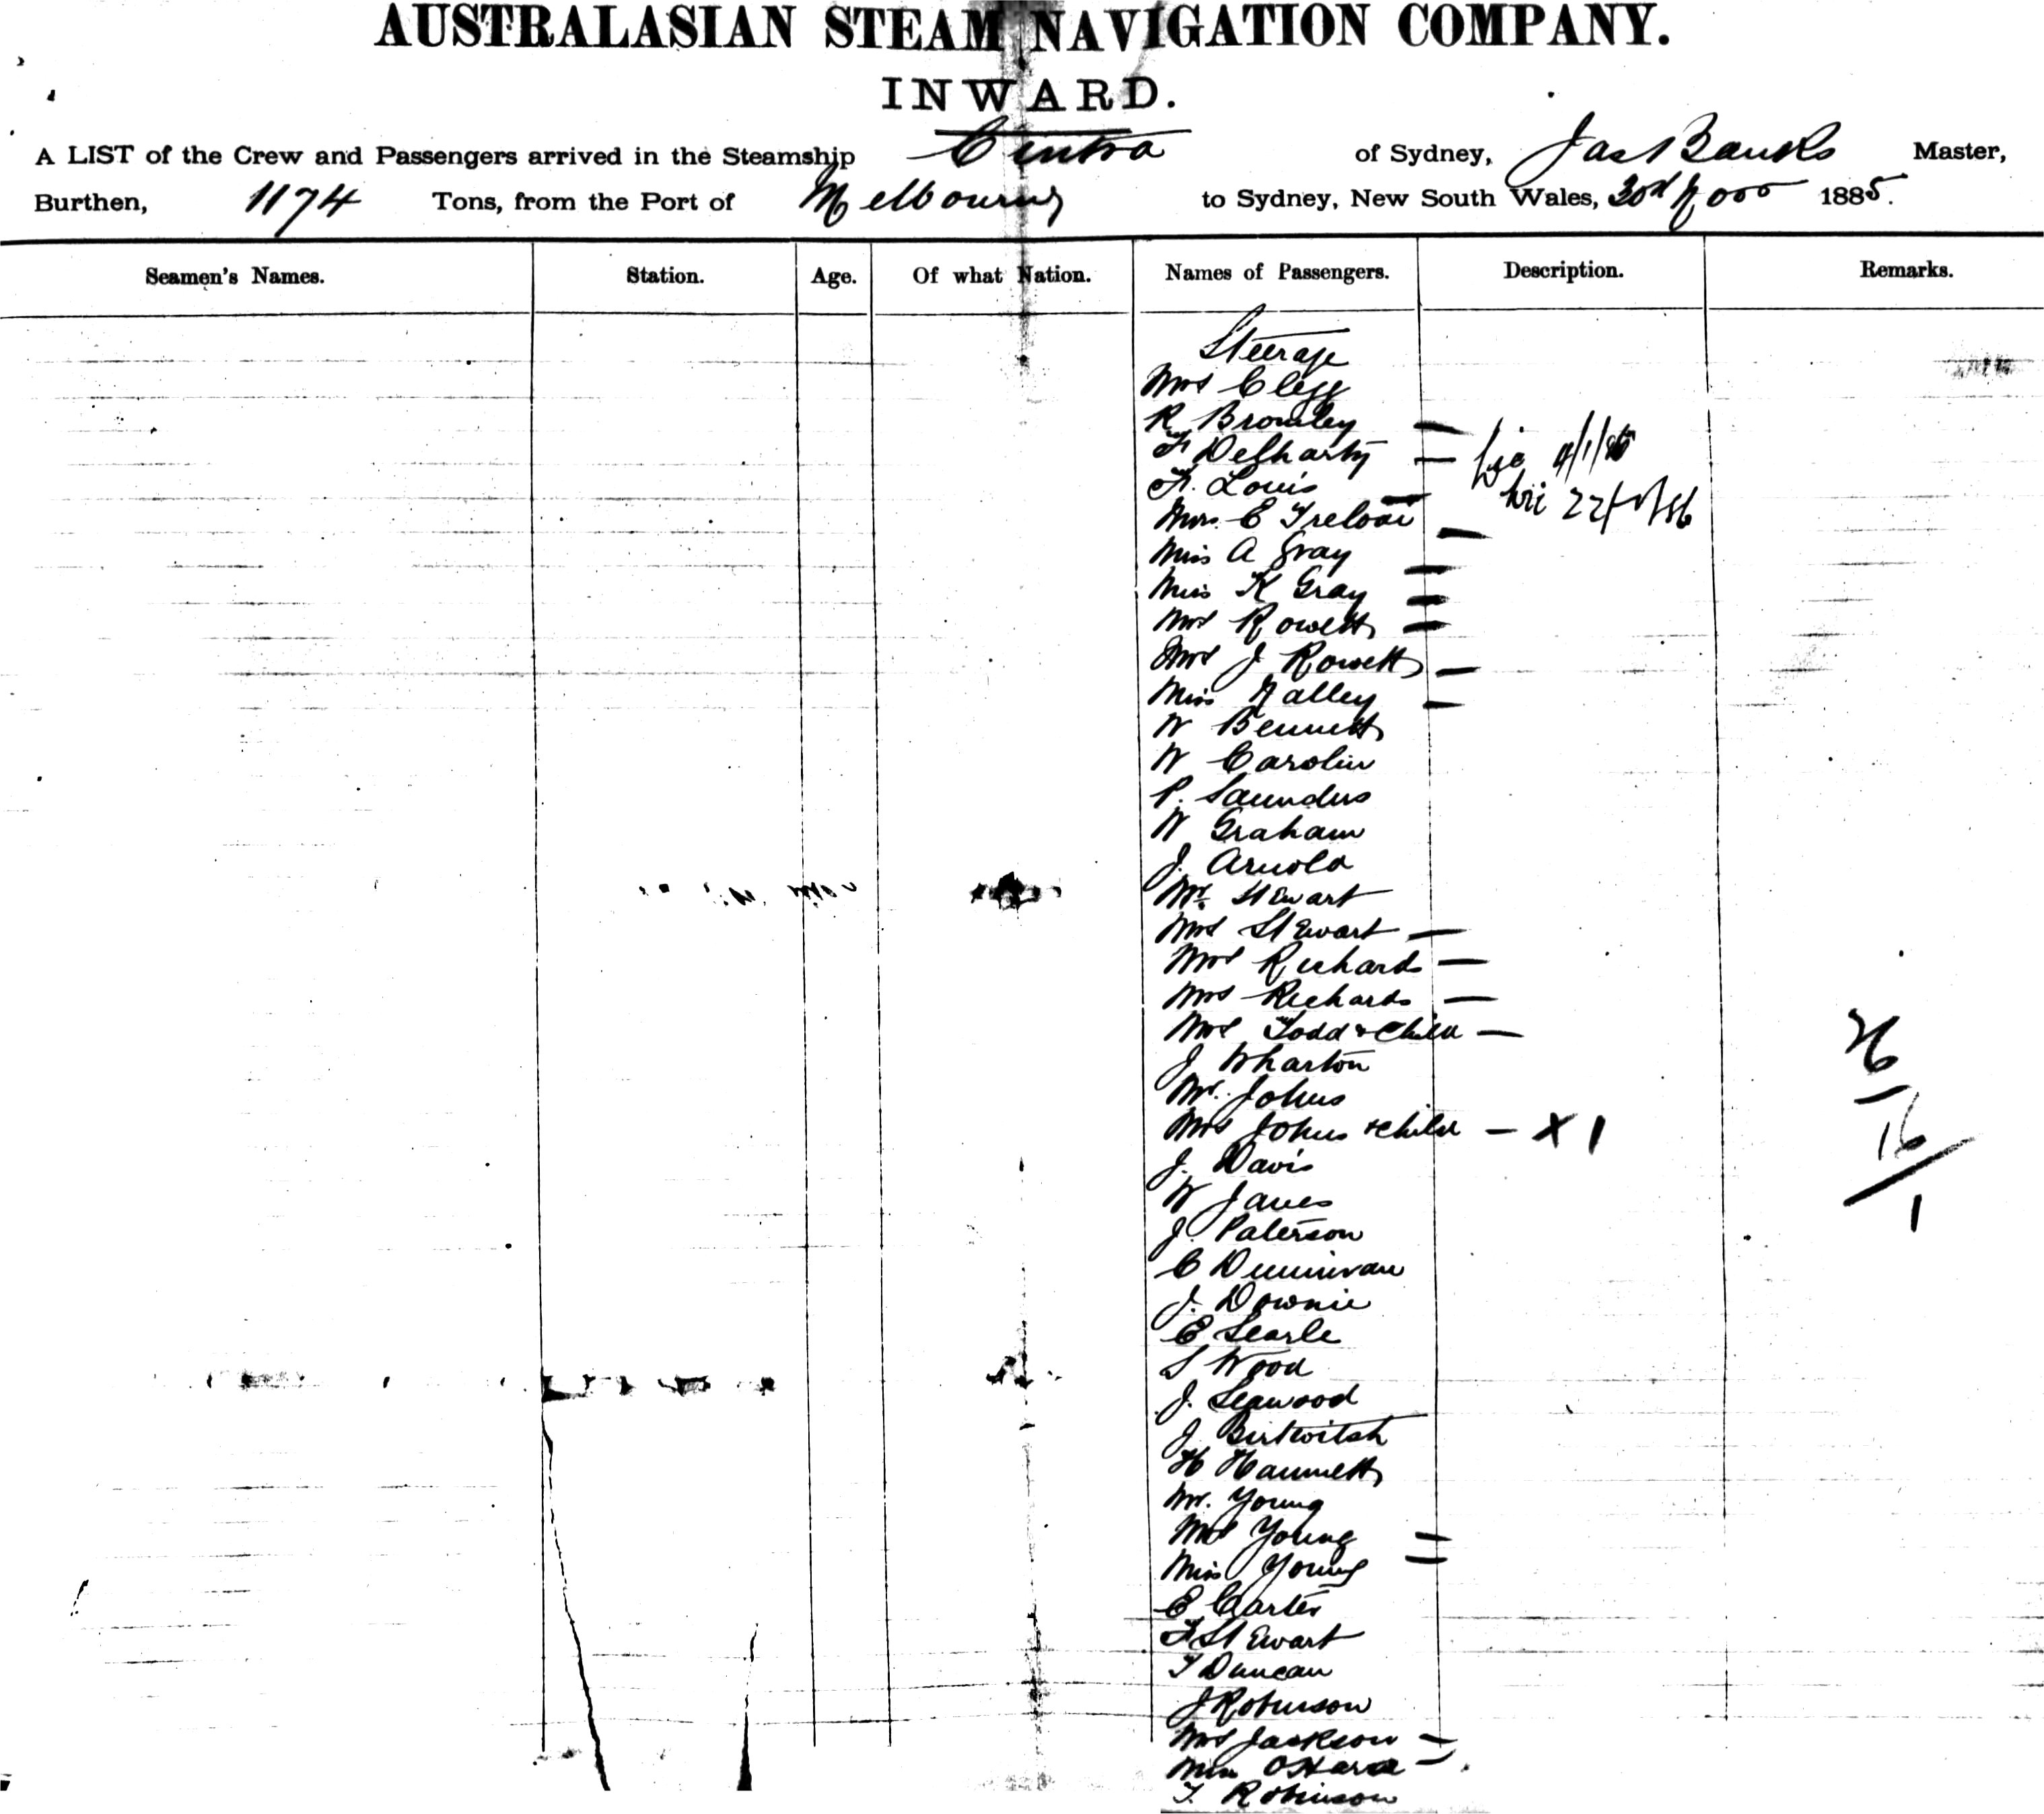 AUSTRALASIAN STEAM NAVIGATION COMPANY.
INWARD.
A LIST of the Crew and Passengers arrived in the Steamship Cintra of Sydney, Jas Banks Master,
Burthen, 1174 Tons, from the Port of Melbourne to Sydney, New South Wales, 30th 1885.
Seamen's Names. Station. Age. Of what Nation. Names of Passengers. Description. Remarks.
Steerage
Mrs Clegg
R Bromley
Delharty
F. Louis
Mrs. E Treloar
Miss A Gray
Miss K Gray
Mrs Rowett
Mrs J Rowett
Miss Nalley
W Bennett
W Carolin
P. Saunders
W Graham
J. Arnold
Mr. Stewart
Mrs Stewart
Mrs Richards
Mrs Richards
Mrs Todd & Child
J Wharton
26
Mr. Johns
Mrs Johns & Child — X 1
16
J. Davis
W Janes
1
J. Paterson
C Dunnivan
J. Downie
E Searle
S Wood
J. Seawood
J Birtwitsh
H Hannett
Mr. Young
Mrs Young
Miss Young
E Carter
F Stewart
T Duncan
J Robinson
Mrs Jackson
Miss O'Hara
T. Robinson